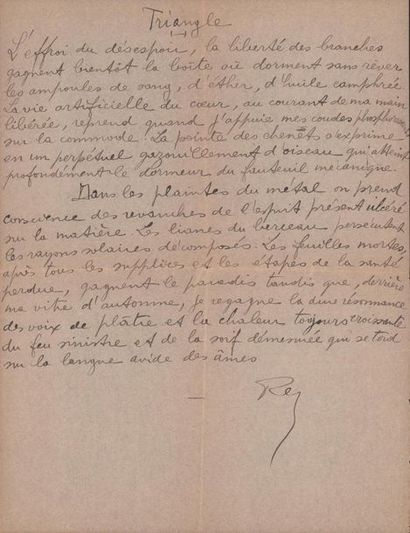 Triangle
L'effroi du désespoir, la liberté des branches
gagnent bientôt la boîte où dorment sans rêver
les ampoules de sang, d'éther, d'huile camphrée.
La vie artificielle du cœur, au courant de ma main
libérée, reprend quand j'appuie mes coudes phosphores
sur la commode. La pointe des chenêts s'exprime
en un perpétuel gazouillement d'oiseau qui atteint
profondément le dormeur du fauteuil mécanique.
Dans les plaintes du métal on prend
conscience des revanches de l'esprit présent ulcéré
sur la matière. Les lianes du berceau persécutent
les rayons solaires décomposés. Les feuilles mortes,
après tous les supplices et les étapes de la santé
perdue, gagnent le paradis tandis que, derrière
ma vitre d'automne, je regagne la dure résonnance
des voix de plâtre et la chaleur toujours croissante
du feu sinistre et de la soif démesurée qui se tord
sur la langue avide des âmes